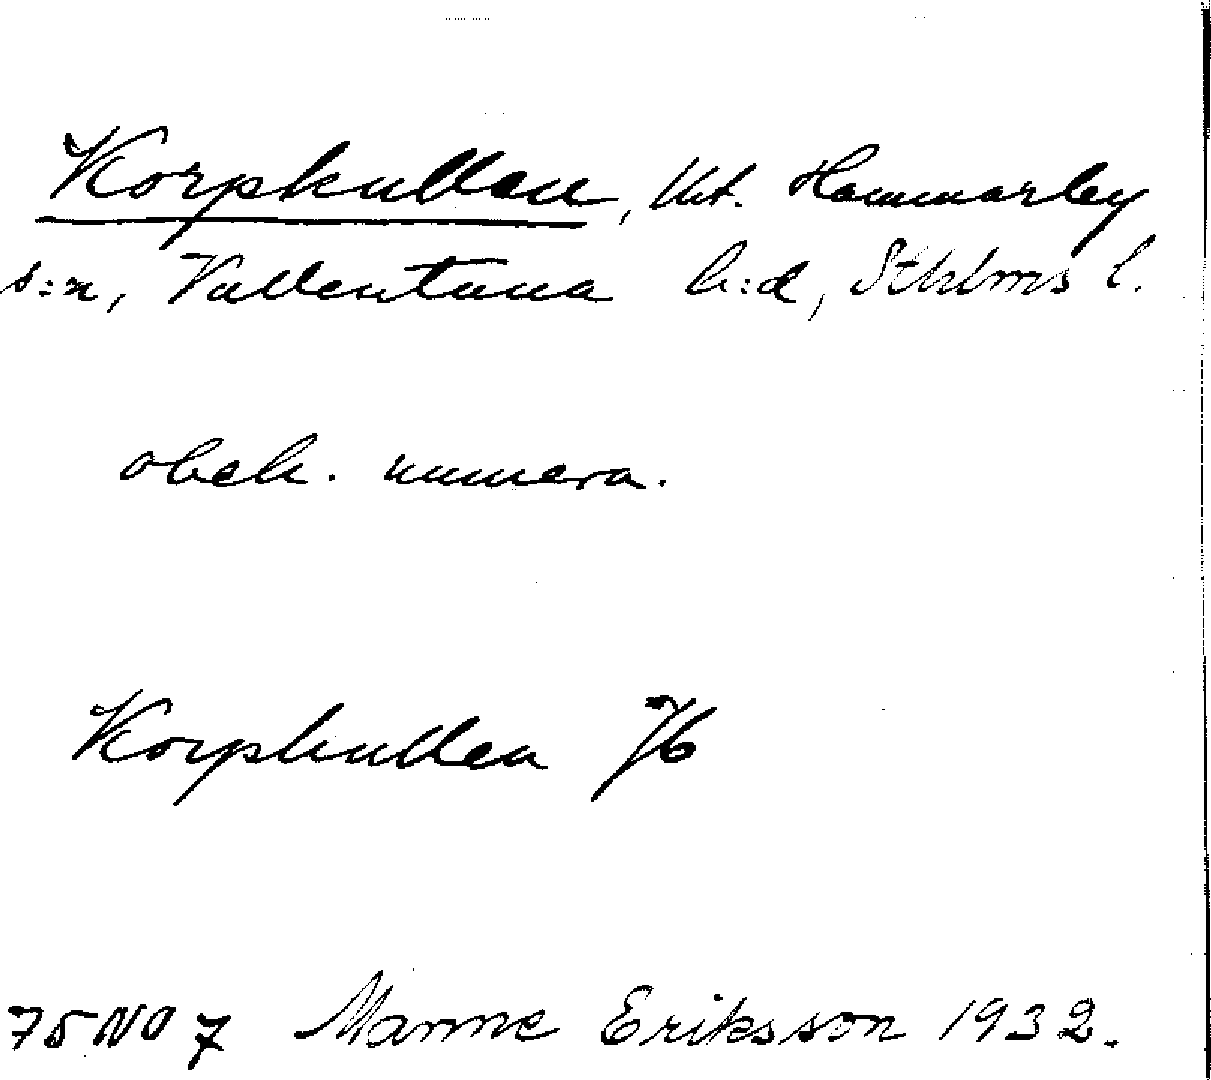 Korpkullen, tkt. Hammarby
s:n, Vallentuna h:d, Sthlms l.
obek. numera.
Korpkullen Jb
75 NO 7 Manne Eriksson 1932.